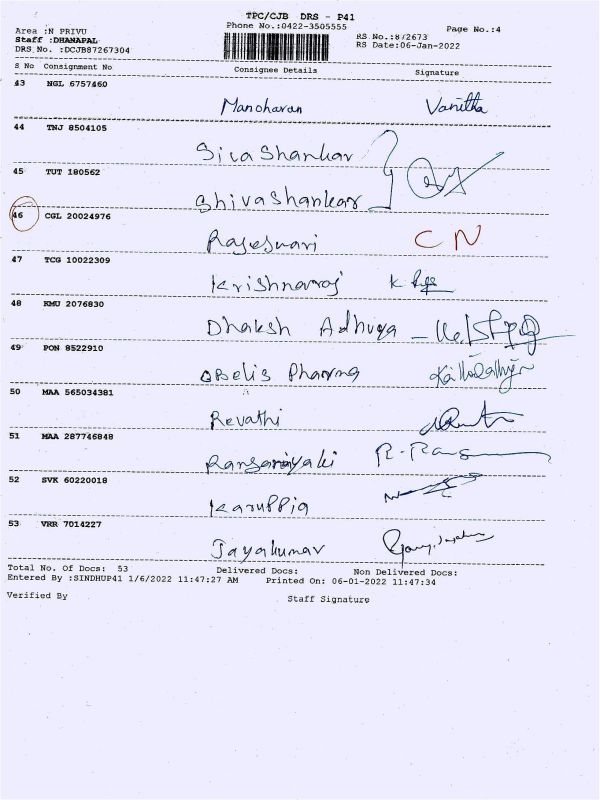 TPC/CJB DRS - P41
Phone No.:0422-3505555
Page No.:4
Area :N PRIVU
RS No.:872673
Staff :DHANAPAL
RS Date:06-Jan-2022
DRS No. :DCJB87267304
S No Consignment No Consignee Details Signature
43 NGL 6757460
Manoharan Vanitha
44 TNJ 8504105
Sivashankar
45 TUT 180562
Shivashankar
46 CGL 20024976
Rajeswari CN
47 TCG 10022309
Krishnaraj K
48 KMU 2076830
Dhaksh Adhuya
49 PON 8522910
Obelis Pharma
50 MAA 565034381
Revathi
51 MAA 287746848
Ranganayaki R. Rang
52 SVK 60220018
Karuppia
53 VRR 7014227
Jayakumar
Total No. Of Docs: 53 Delivered Docs: Non Delivered Docs:
Entered By :SINDHUP41 1/6/2022 11:47:27 AM Printed On: 06-01-2022 11:47:34
Verified By Staff Signature